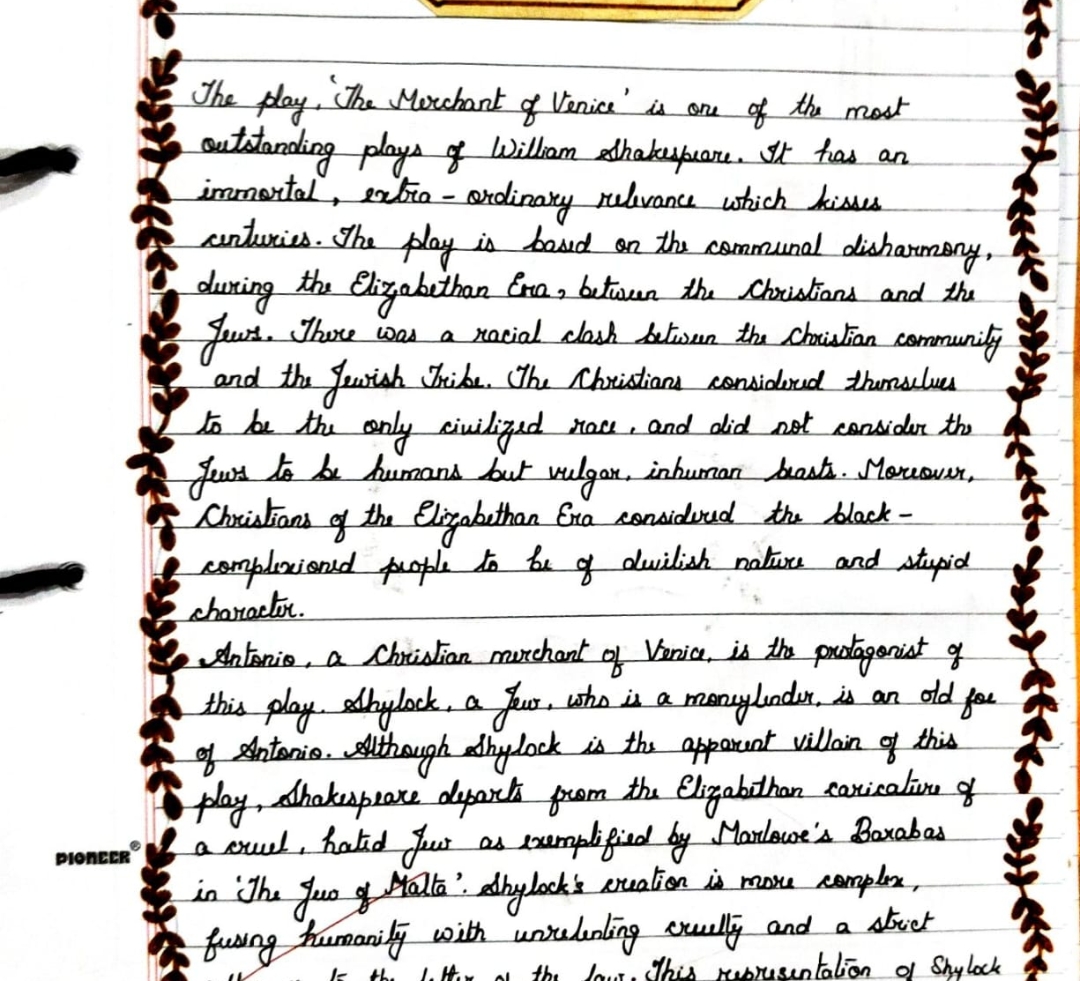 The play, 'The Merchant of Venice' is one of the most
outstanding plays of William Shakespeare. It has an
immortal, extra - ordinary relevance which kisses
centuries. The play is based on the communal disharmony,
during the Elizabethan Era, between the Christians and the
Jews. There was a racial clash between the Christian community
and the Jewish Tribe. The Christians considered themselves
to be the only civilized race, and did not consider the
Jews to be humans but vulgar, inhuman beasts. Moreover,
Christians of the Elizabethan Era considered the black -
complexioned people to be of devilish nature and stupid
character.
Antonio, a Christian merchant of Venice, is the protagonist of
this play. Shylock, a Jew, who is a moneylender, is an old foe
of Antonio. Although Shylock is the apparent villain of this
play, Shakespeare departs from the Elizabethan caricature of
a cruel, hated Jew as exemplified by Marlowe's Barabas
PIONEER®
in 'The Jew of Malta'. Shylock's creation is more complex,
fusing humanity with unrelenting cruelty and a strict
to the letter of the law. This representation of Shylock